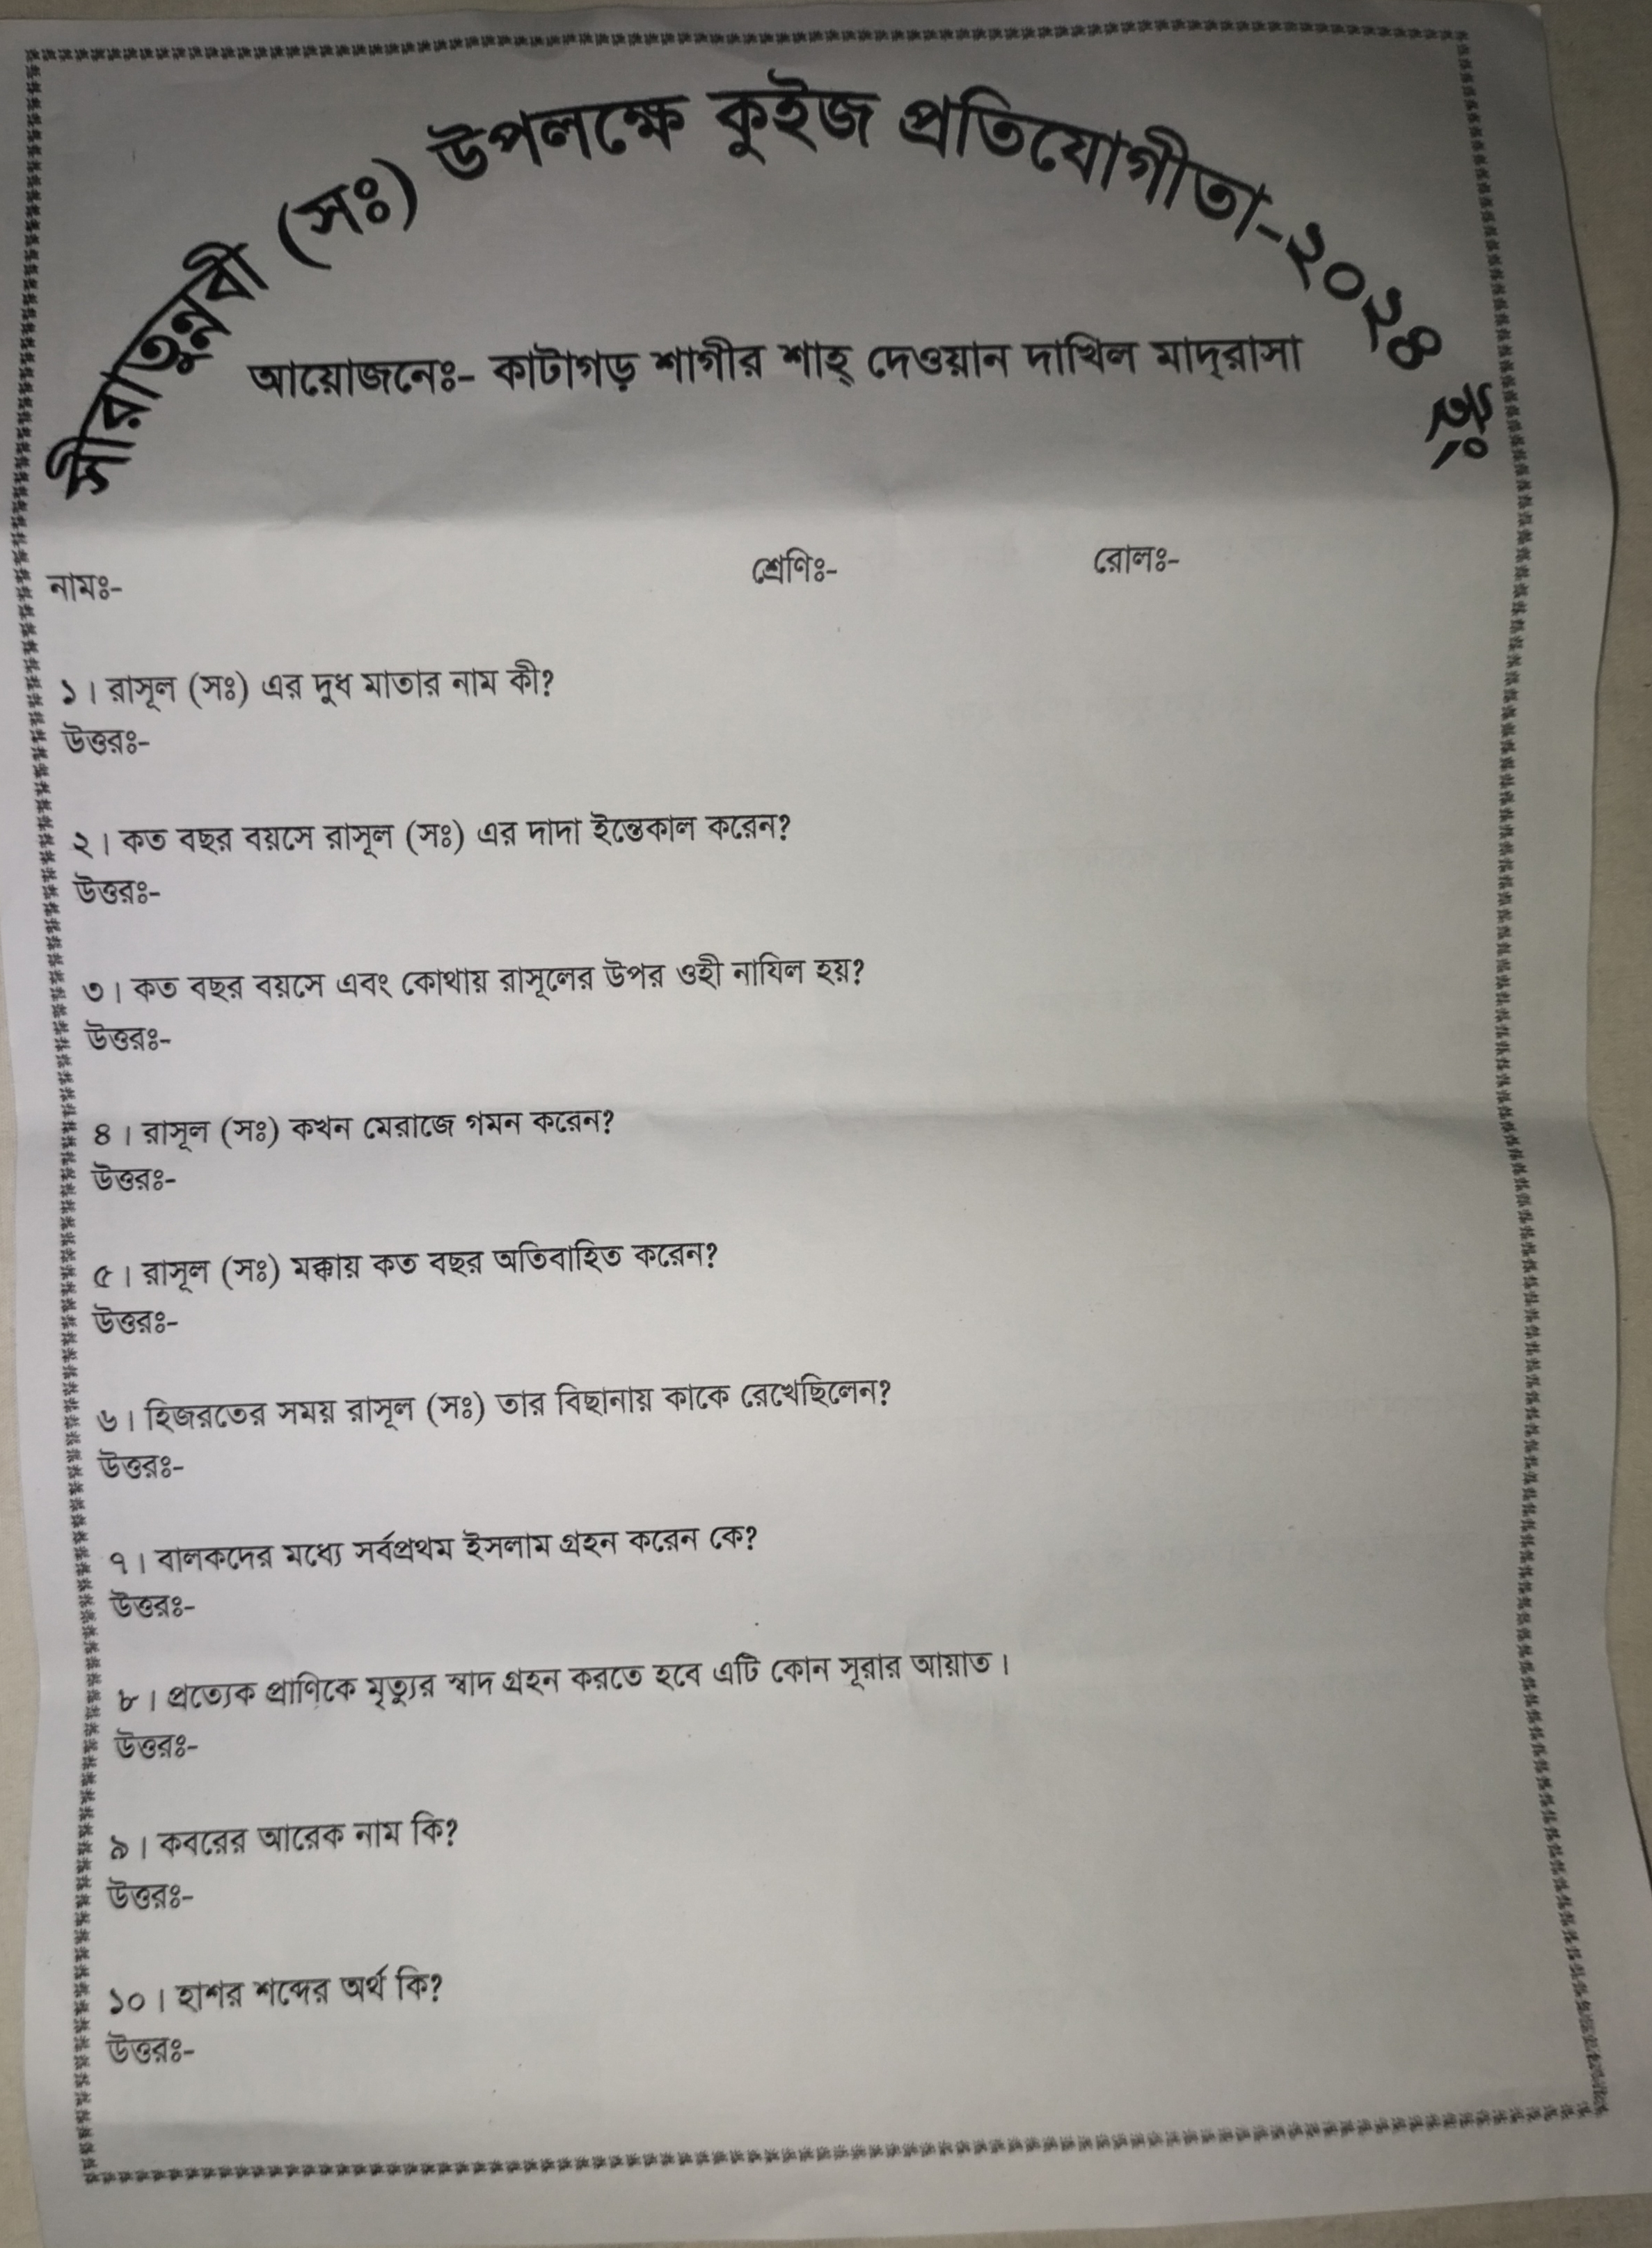 সীরাতুন্নবী (সঃ) উপলক্ষে কুইজ প্রতিযোগীতা-২০২৪ ইং
আয়োজনেঃ- কাটাগড় শাগীর শাহ্ দেওয়ান দাখিল মাদ্‌রাসা
নামঃ- শ্রেণিঃ- রোলঃ-
১। রাসূল (সঃ) এর দুধ মাতার নাম কী?
উত্তরঃ-
২। কত বছর বয়সে রাসূল (সঃ) এর দাদা ইন্তেকাল করেন?
উত্তরঃ-
৩। কত বছর বয়সে এবং কোথায় রাসূলের উপর ওহী নাযিল হয়?
উত্তরঃ-
৪। রাসূল (সঃ) কখন মেরাজে গমন করেন?
উত্তরঃ-
৫। রাসূল (সঃ) মক্কায় কত বছর অতিবাহিত করেন?
উত্তরঃ-
৬। হিজরতের সময় রাসূল (সঃ) তার বিছানায় কাকে রেখেছিলেন?
উত্তরঃ-
৭। বালকদের মধ্যে সর্বপ্রথম ইসলাম গ্রহন করেন কে?
উত্তরঃ-
৮। প্রত্যেক প্রাণিকে মৃত্যুর স্বাদ গ্রহন করতে হবে এটি কোন সূরার আয়াত।
উত্তরঃ-
৯। কবরের আরেক নাম কি?
উত্তরঃ-
১০। হাশর শব্দের অর্থ কি?
উত্তরঃ-